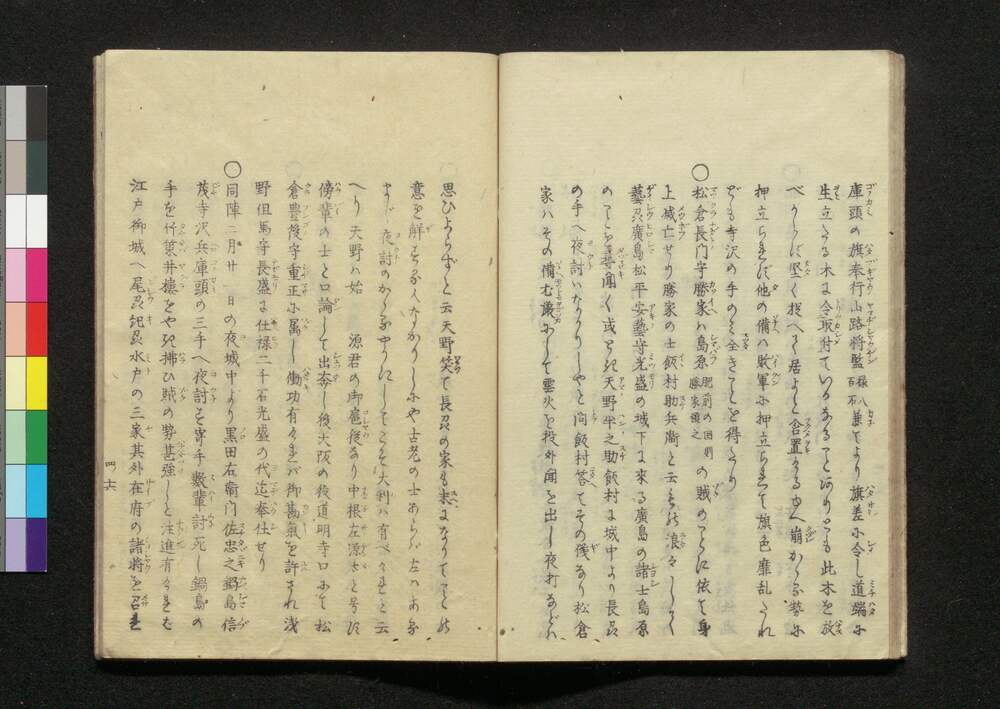 庫頭の旗奉行山路将監禄八百石兼てより旗差に令し道端に
生立たる木に令取付ているあることありとも此木を放
べからず堅く捉へて居よと含置たるゆへ崩かゝる勢に
押立られず他の備ハ敗軍に押立られて旗色靡乱たれ
ども寺沢の手のミ全きことを得たり
〇松倉長門守勝家ハ島原肥前の国則勝家領之の賊のことに依て身
上滅亡せり勝家の士飯村助兵衛と云もの浪々しく
藝州廣島松平安藝守光盛の城下に来る廣島の諸士島原
のことを尋聞く或とき天野半之助飯村に城中より長岡
の手へ夜討ハなかりしやと問飯村答てその儀あり松倉
家ハその備むね厳にして雲火を投外聞を出し夜打などハ
思ひよらずと云天野笑て長岡の家も末になりてこその
意を解せる人なかりしにや古老の士あらバ左ハあるまじ
夜討のかゝるやうにしてこそ大利ハ有べけれと云
へり天野ハ始　源君の御扈従なり中根左源太と号す
傍輩の士と口論して出奔し後大阪の役道明寺口にて松
倉豊後守重正に属し働功有けれバ御勘氣を許され浅
野但馬守長晟に仕禄二千石光盛の代迄奉仕せり
〇同陣二月廿一日の夜城中より黒田右衛門佐忠之鍋島信
茂寺沢兵庫頭の三手へ夜討を寄手數輩討死し鍋島の
手を竹束井樓をやき拂ひ賊の勢甚強しと注進有けれバ
江戸御城へ尾州紀州水戸の三家其外在府の諸将を召され
四十六